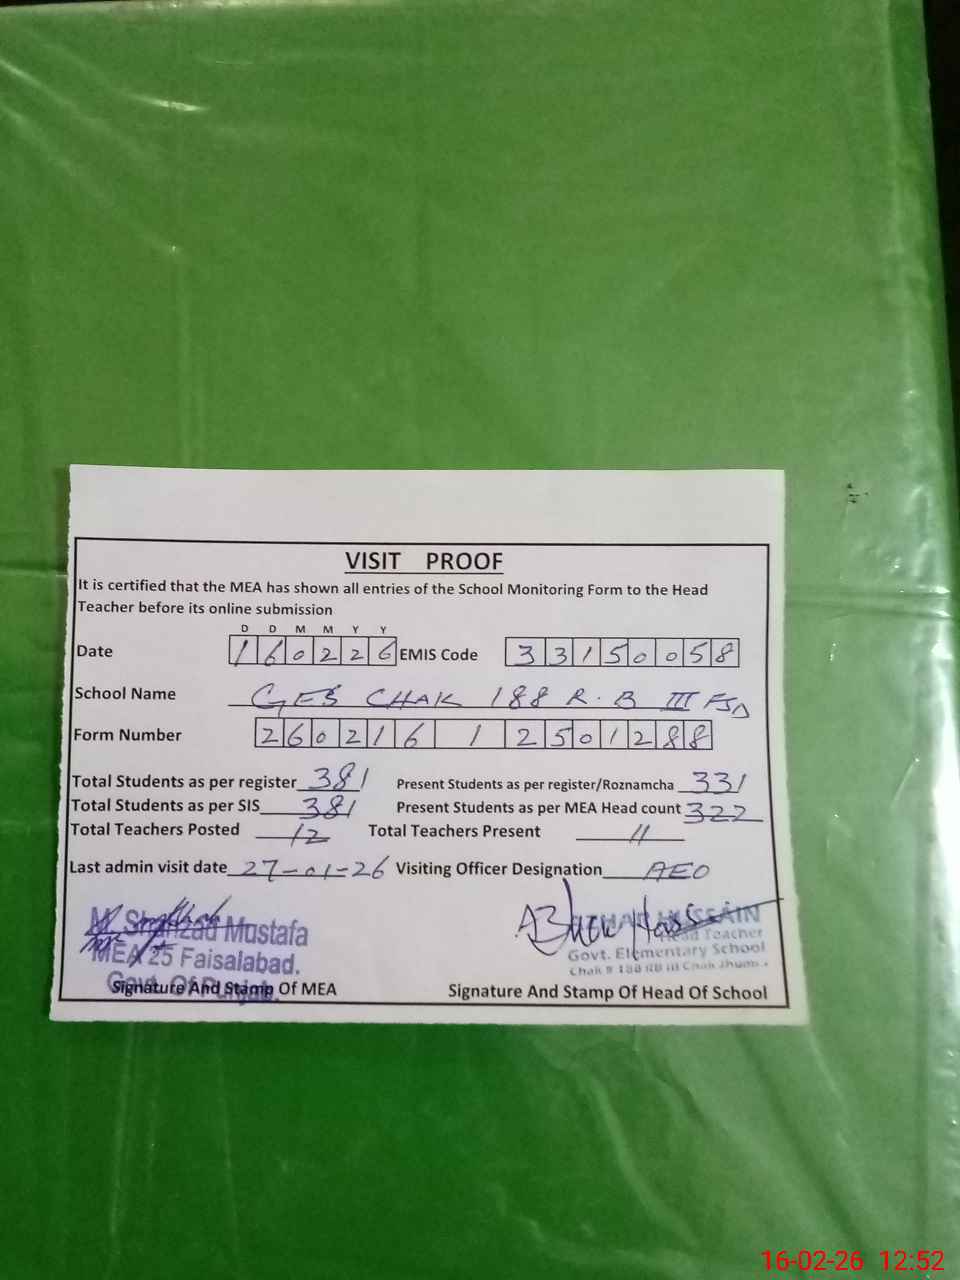 VISIT PROOF
It is certified that the MEA has shown all entries of the School Monitoring Form to the Head
Teacher before its online submission
D D M M Y Y
Date 160226 EMIS Code 33150058
School Name GES CHAK 188 R.B III FSD
Form Number 260216 1 2501288
Total Students as per register 381 Present Students as per register/Roznamcha 331
Total Students as per SIS 381 Present Students as per MEA Head count 322
Total Teachers Posted 12 Total Teachers Present 11
Last admin visit date 27-01-26 Visiting Officer Designation AEO
M. Shahzad Mustafa
MEA 25 Faisalabad.
Govt. Of Punjab.
Signature And Stamp Of MEA
AZHAR HUSSAIN
Head Teacher
Govt. Elementary School
Chak # 188 RB III Chak Jhum
Signature And Stamp Of Head Of School
16-02-26 12:52